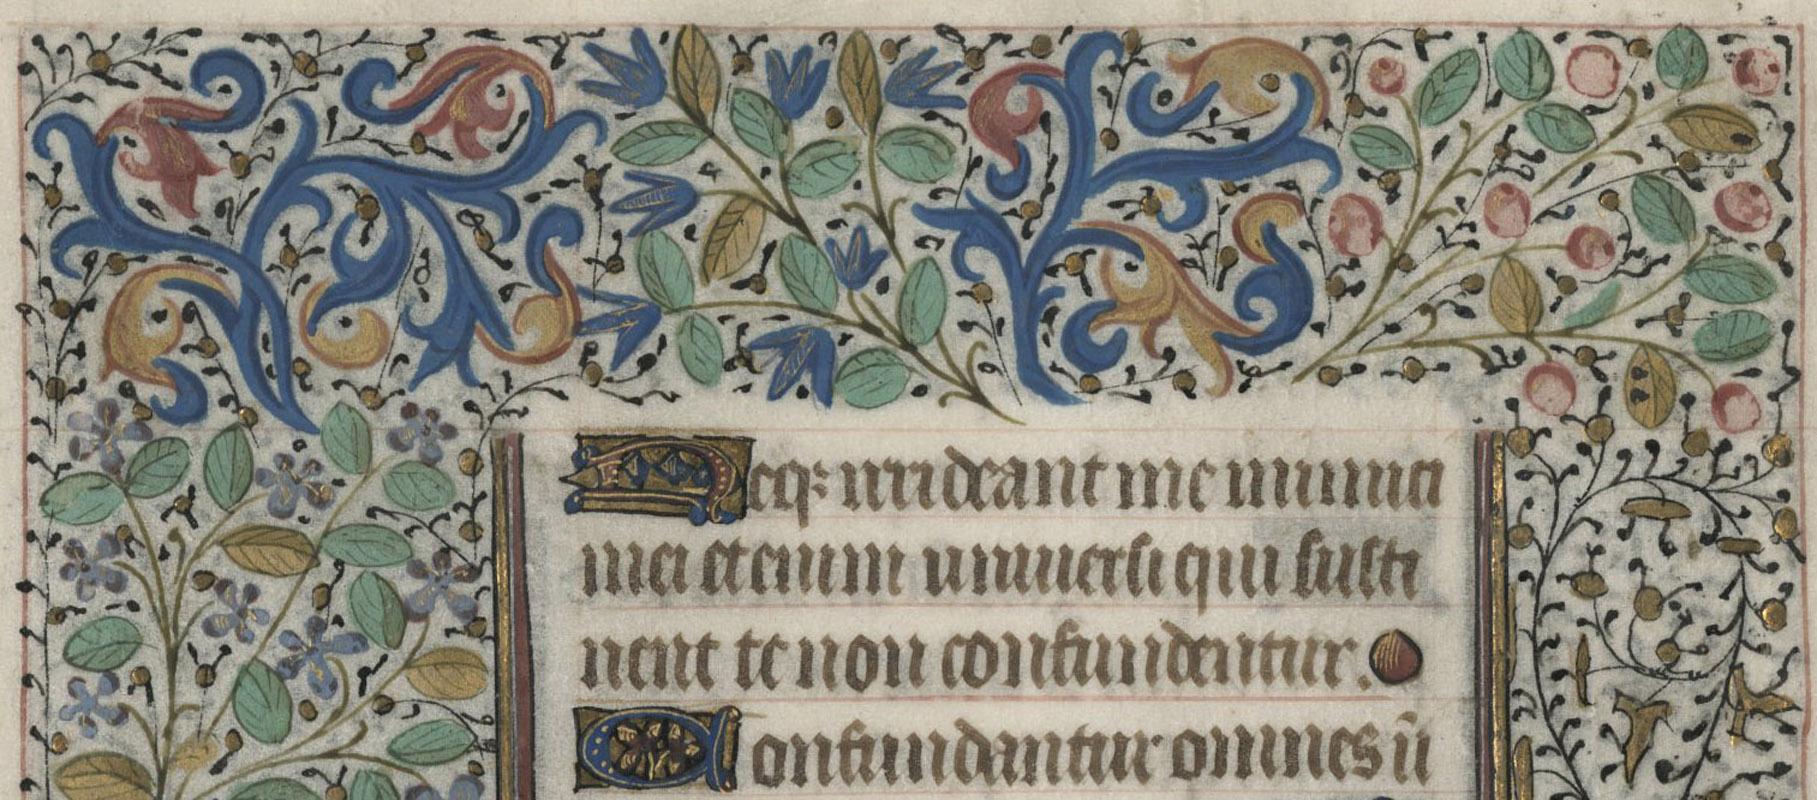 Neqꝫ irrideant me inimici
mei etenim universi qui susti
nent te non confundentur.
Confundantur omnes i